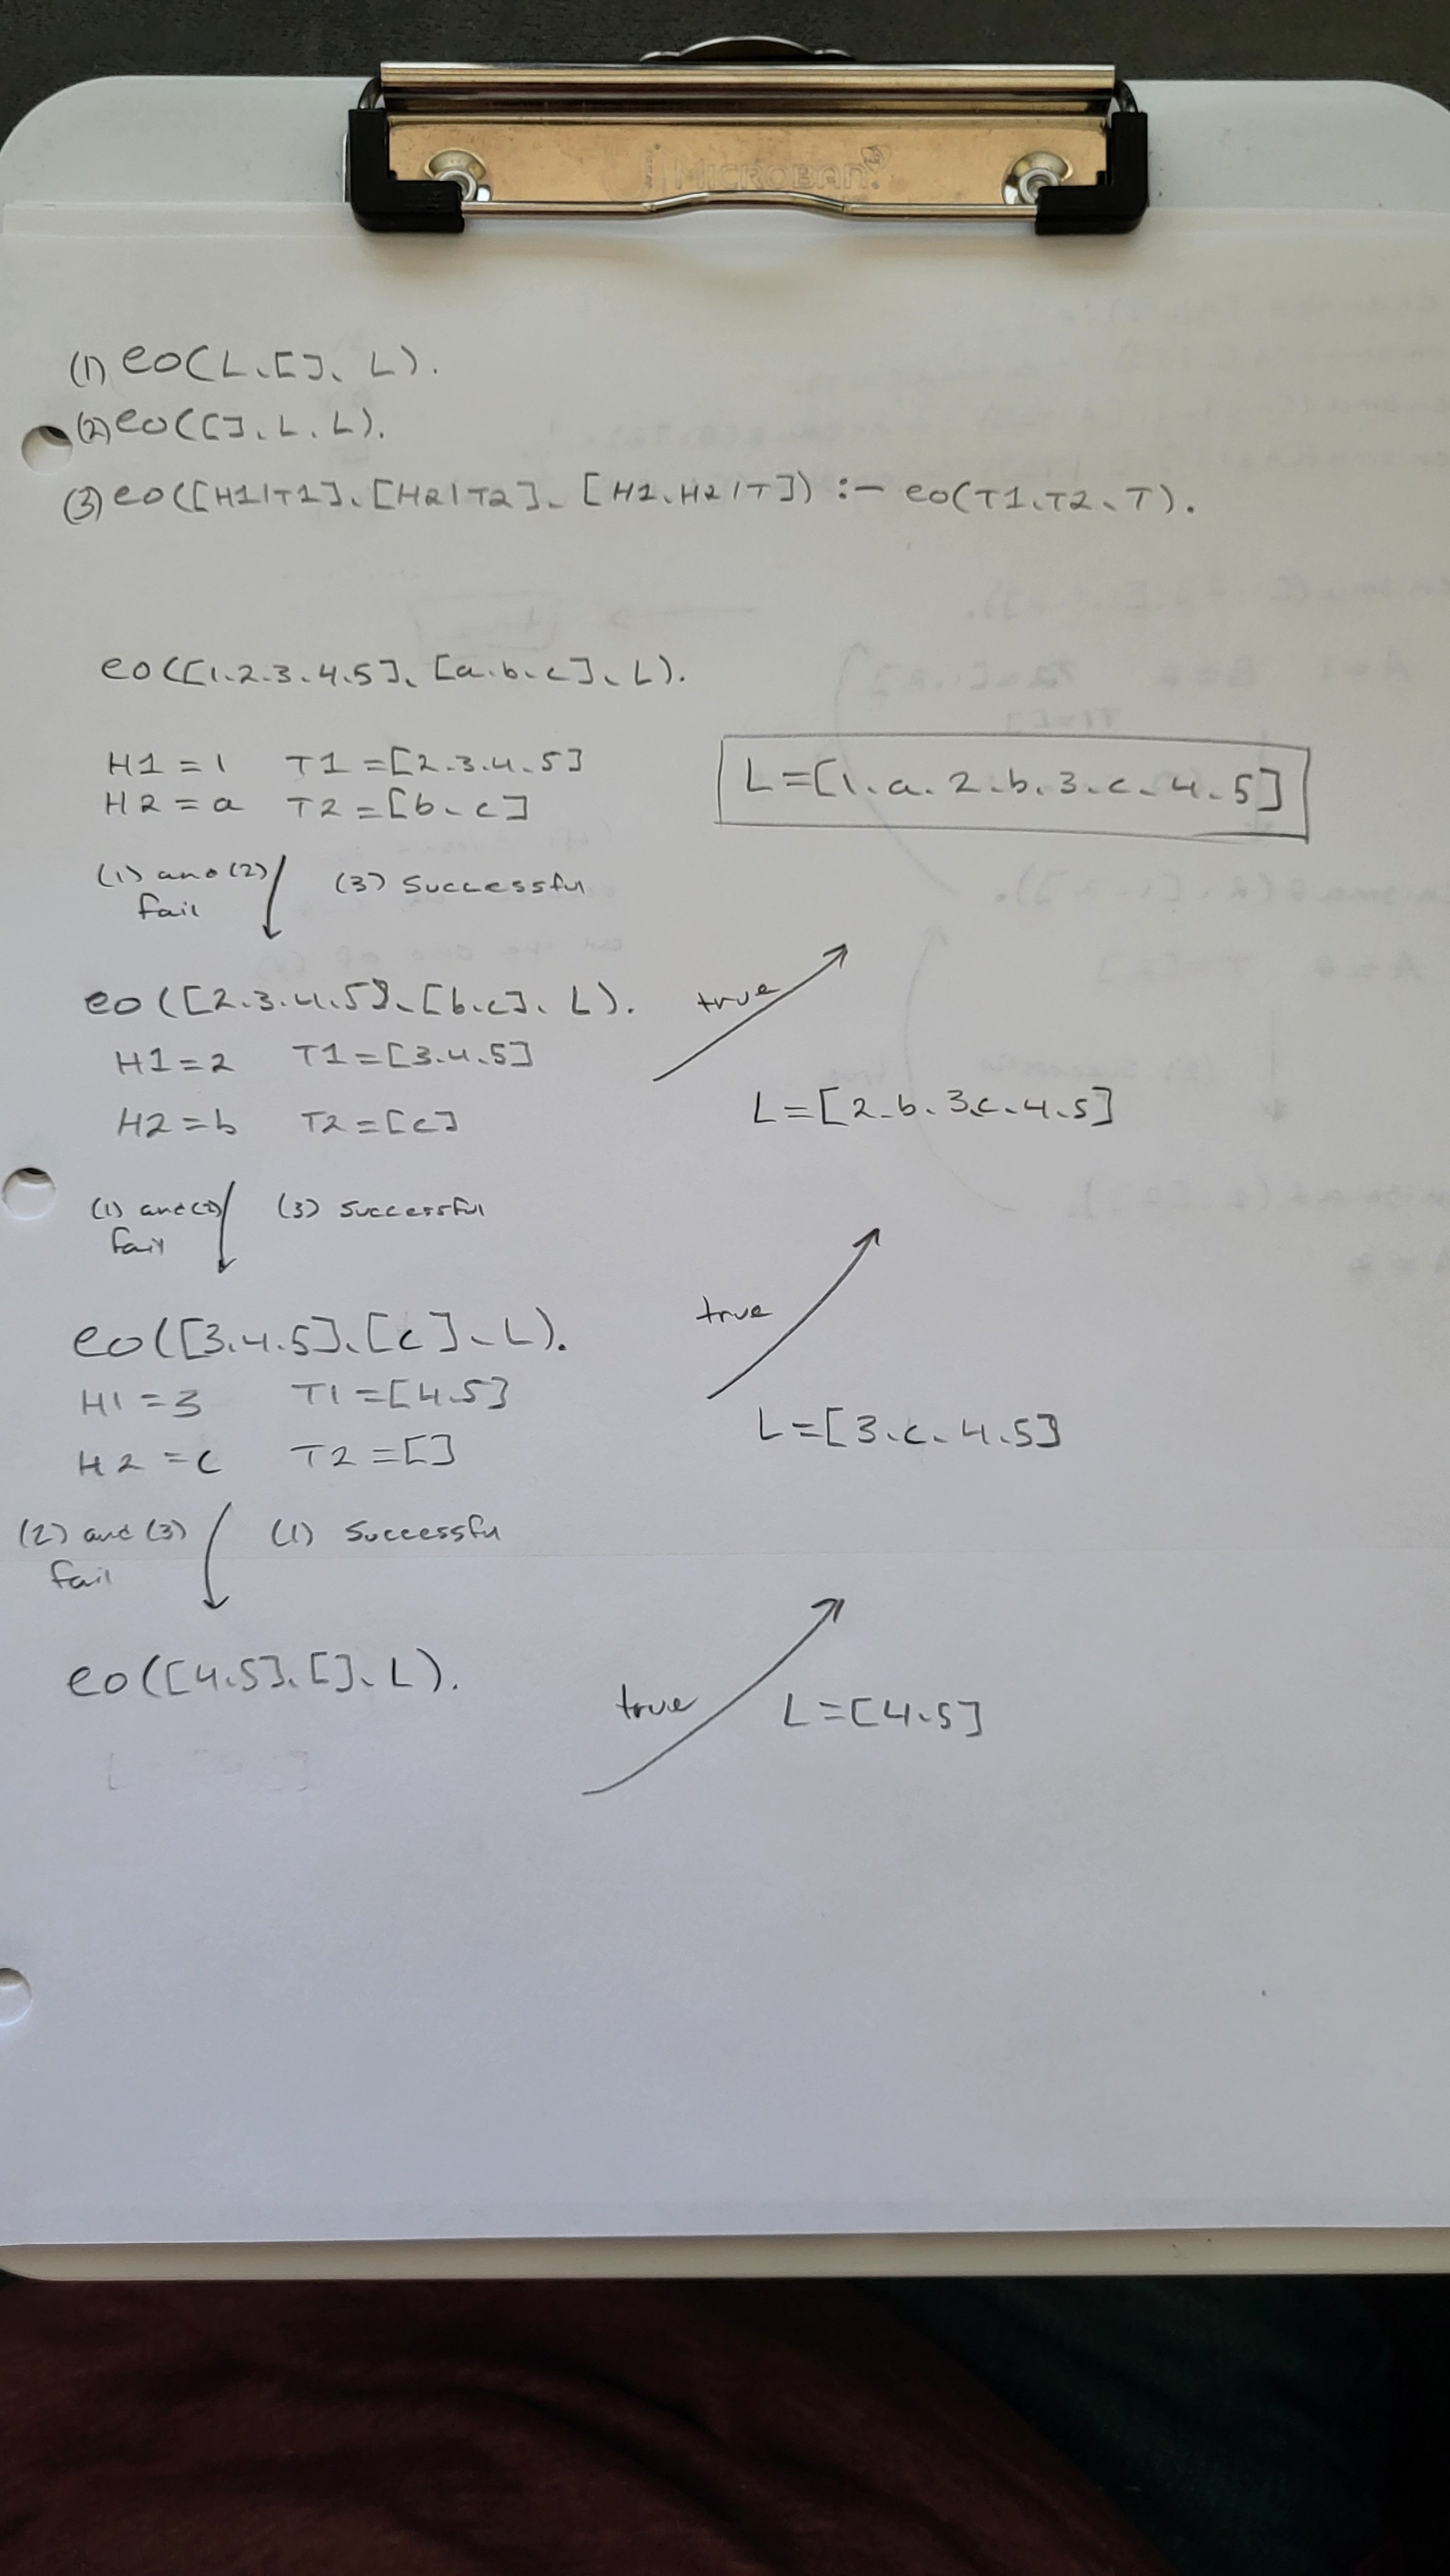 MICROBAN
(1) eo(L, [], L).
(2) eo([], L, L).
(3) eo([H1|T1], [H2|T2], [H1, H2|T]) :- eo(T1, T2, T).
eo([1,2,3,4,5], [a,b,c], L).
H1 = 1 T1 = [2,3,4,5]
H2 = a T2 = [b,c]
L = [1,a,2,b,3,c,4,5]
(1) and (2) fail (3) Successful
eo([2,3,4,5], [b,c], L).
H1 = 2 T1 = [3,4,5]
H2 = b T2 = [c]
true
L = [2,b,3,c,4,5]
(1) and (2) fail (3) Successful
eo([3,4,5], [c], L).
H1 = 3 T1 = [4,5]
H2 = c T2 = []
true
L = [3,c,4,5]
(2) and (3) fail (1) Successful
eo([4,5], [], L).
true
L = [4,5]